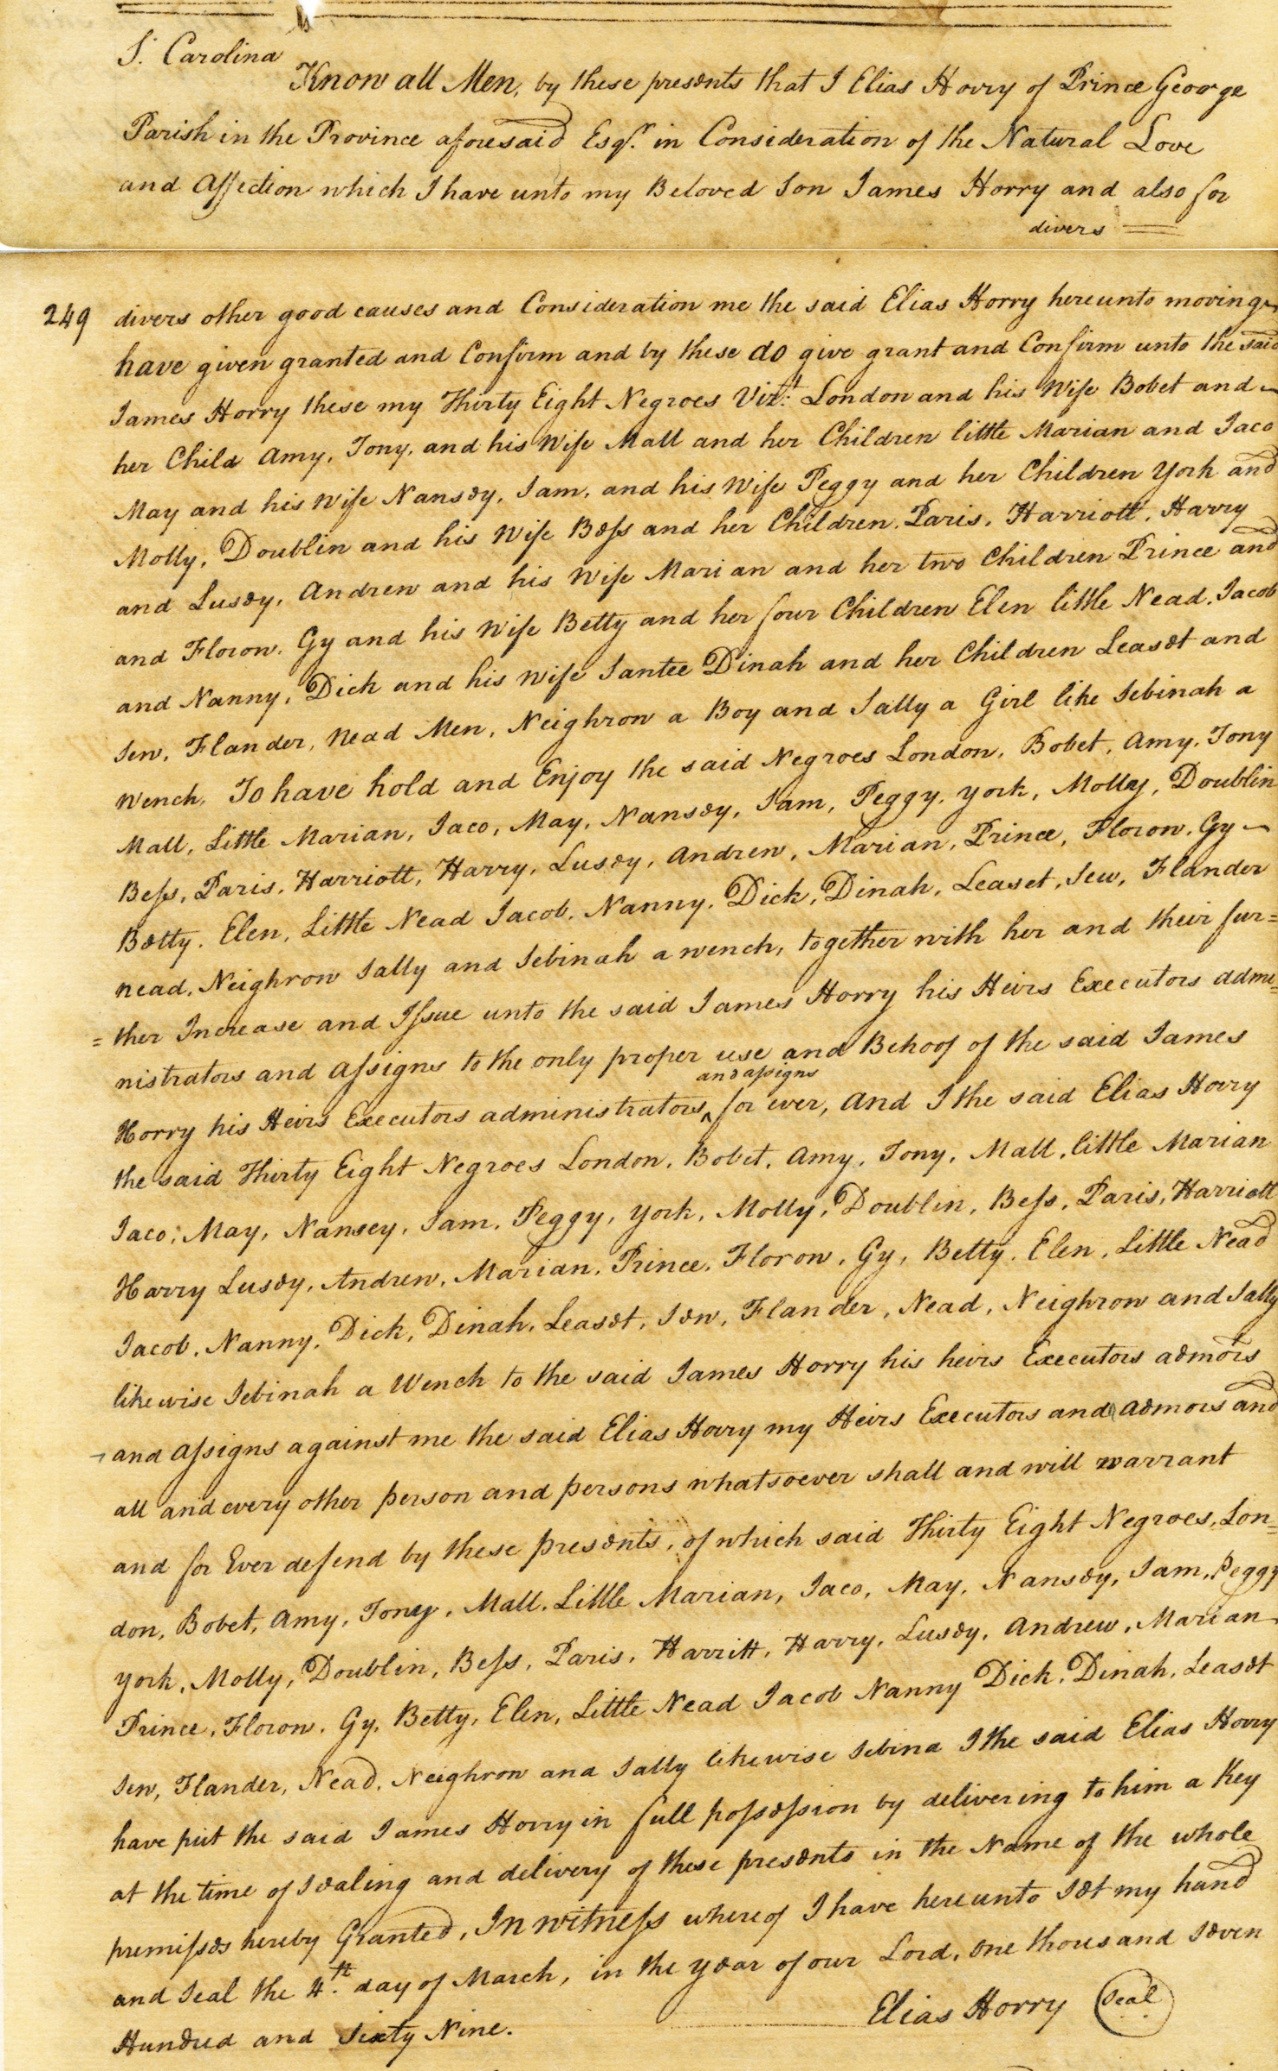 S. Carolina
Know all Men, by these presents that I Elias Horry of Prince George
Parish in the Province aforesaid Esqr. in Consideration of the Natural Love
and Affection which I have unto my Beloved Son James Horry and also for
divers
249 divers other good causes and Consideration me the said Elias Horry hereunto moving
have given granted and Confirm and by these do give grant and Confirm unto the said
James Horry these my Thirty Eight Negroes Vizt: London and his Wife Bobet and
her Child Amy, Tony, and his Wife Mall and her Children little Marian and Jaco
May and his Wife Nansey, Sam, and his Wife Peggy and her Children York and
Molly, Doublin and his Wife Bess and her Children, Paris, Harriott, Harry
and Lusey, Andrew and his Wife Marian and her two Children Prince and
and Floron. Gy and his Wife Betty and her four Children Elen little Nead, Jacob
and Nanny, Dick and his Wife Santee Dinah and her Children Leaset and
Sew, Flander, Nead Men, Neighrow a Boy and Sally a Girl like Sebinah a
Wench, To have hold and Enjoy the said Negroes London, Bobet, Amy, Tony
Mall, Little Marian, Jaco, May, Nansey, Sam, Peggy, York, Molly, Doublin
Bess, Paris, Harriott, Harry, Lusey, Andrew, Marian, Prince, Floron, Gy
Betty, Elen, Little Nead Jacob, Nanny, Dick, Dinah, Leaset, Sew, Flander
nead, Neighrow Sally and Sebinah a wench, together with her and their fur=
=ther Increase and Issue unto the said James Horry his Heirs Executors admi=
nistrators and Assigns to the only proper use and Behoof of the said James
and assigns
Horry his Heirs Executors administrators ^ for ever, And I the said Elias Horry
the said Thirty Eight Negroes London, Bobet, Amy, Tony, Mall, little Marian
Jaco; May, Nansey, Sam, Peggy, York, Molly, Doublin, Bess, Paris, Harriott
Harry Lusey, Andrew, Marian, Prince, Floron, Gy, Betty, Elen, Little Nead
Jacob, Nanny, Dick, Dinah, Leaset, Sew, Flander, Nead, Neighrow and Sally
likewise Sebinah a Wench to the said James Horry his heirs Executors admors
and Assigns against me the said Elias Horry my Heirs Executors and Admors and
all and every other person and persons whatsoever shall and will warrant
and for Ever defend by these presents, of which said Thirty Eight Negroes, Lon=
don, Bobet, Amy, Tony, Mall, Little Marian, Jaco, May, Nansey, Sam, Peggy
York, Molly, Doublin, Bess, Paris, Harritt, Harry, Lusey, Andrew, Marian
Prince, Floron, Gy, Betty, Elen, Little Nead Jacob Nanny Dick, Dinah, Leaset
Sew, Flander, Nead, Neighrow and Sally likewise Sebina I the said Elias Horry
have put the said James Horry in full possession by delivering to him a Key
at the time of Sealing and delivery of these presents in the Name of the whole
premises hereby Granted, In witness whereof I have hereunto Set my hand
and Seal the 4th. day of March, in the year of our Lord, one thousand Seven
Hundred and Sixty Nine. Elias Horry Seal